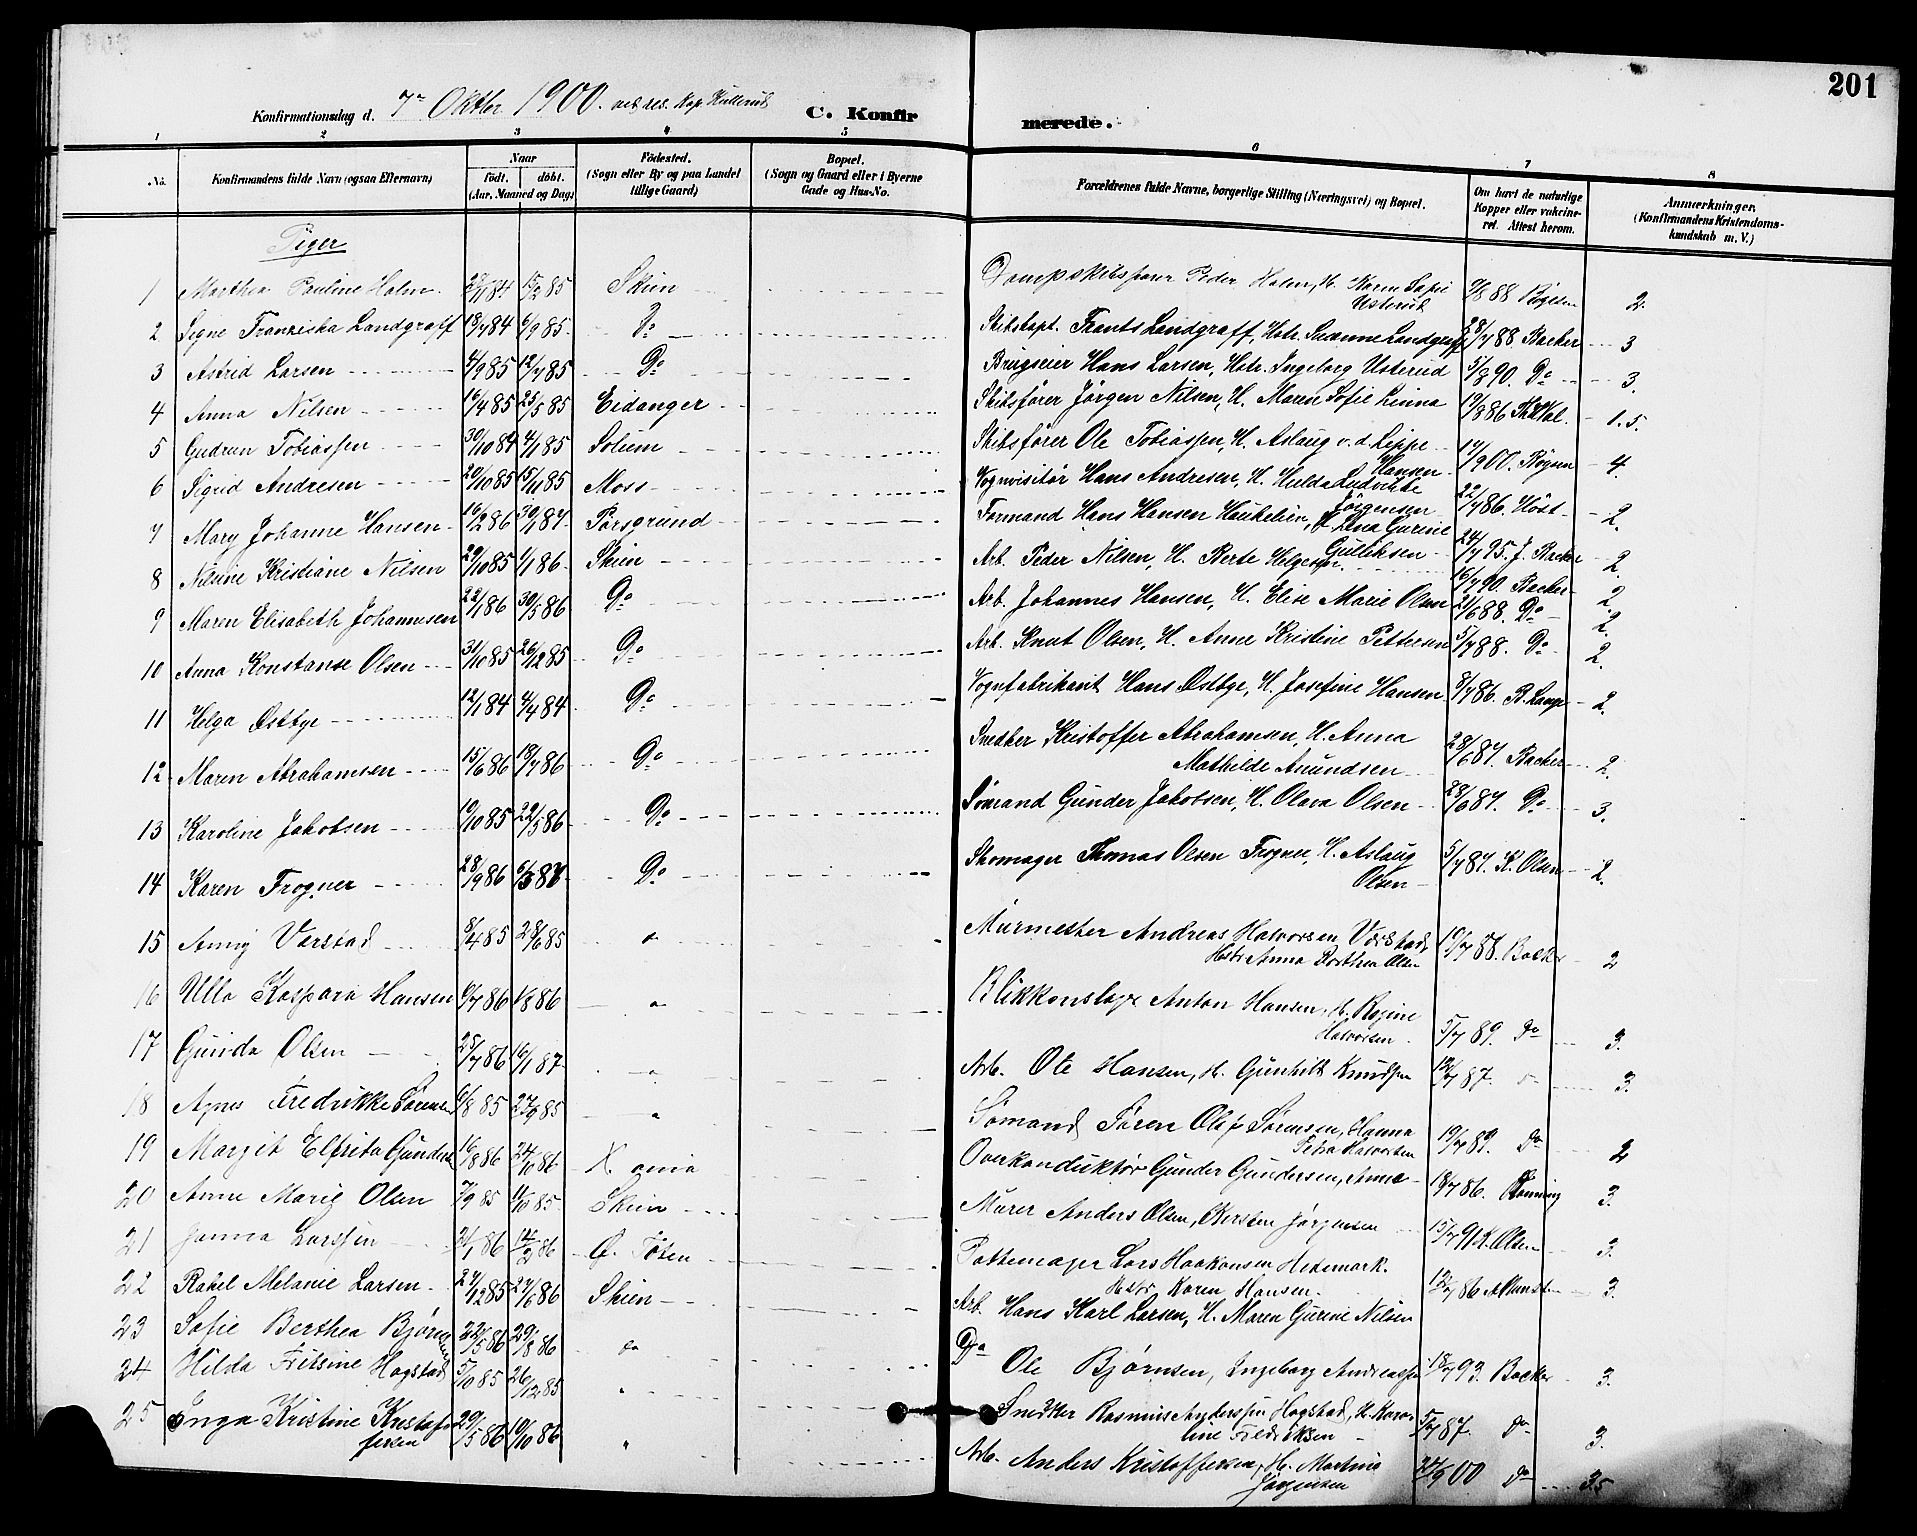 201
Konfirmationsdag d. 7de Oktbr 1900. ved res. Kap. Kullerud C. Konfirmerede.
1 2 3 4 5 6 7 8
No. Konfirmandens fulde Navn (ogsaa Efternavn) Naar födt. döbt. (Aar, Maaned og Dag) Födested. (Sogn eller By og paa Landet tillige Gaard) Bopæl. (Sogn og Gaard eller i Byerne Gade og Hus-No. Forældrenes fulde Navne, borgerlige Stilling (Næringsvei) og Bopæl. Om havt de naturlige Kopper eller vakcineret. Attest herom. Anmærkninger. (Konfirmandens Kristendomskundskab m. V.)
Piger
1 Marthea Pauline Holm 15/2 85 Skien Dampskibsfører Peder Holm, H. Karen Sofie Usterud 2.
2 Signe Franziska Landgraff 18/7 84 6/9 85 Do Skibskapt. Frants Landgraff, Hstr. Susanne Landgraff 28/7 88 Backer 3
3 Astrid Larsen 4/9 85 12/7 85 Do Brugseier Hans Larsen, Hstr. Ingeborg Usterud 5/8 90. Do 3.
4 Anna Nilsen 16/4 85 25/5 85 Eidanger Skibsfører Jørgen Nilsen, H. Maren Sofie Linna 19/8 86 1.5.
5 Gudrun Tobiassen 30/10 84 4/1 85 Solum Skibsfører Ole Tobiassen, H. Aslaug v. d. Lippe Hansen 14/9 00. 4
6 Sigrid Andresen 20/10 85 15/11 85 Moss Vognvisitør Hans Andresen, H. Hulda Ludvikke Jörgensen 22/7 86. Höst 2.
7 Mary Johanne Hansen 16/2 86 30/1 87 Porsgrund Formand Hans Hansen Haukelien, H. Lena Gurine Gulliksen 24/7 95. J. Backer 2.
8 Nilsine Kristiane Nilsen 29/10 85 1/1 86 Skien Arb. Peder Nilsen, H. Berte Helgesen. 16/7 90. Backer 2.
9 Maren Elisabeth Johannesen 22/1 86 30/5 86 Do Arb. Johannes Hansen, H. Elise Marie Olsen 21/6 88. Do 2.
10 Anna Konstanse Olsen 31/10 85 26/12 85 Do Arb. Knut Olsen, H. Anne Kristine Pettersen 5/7 88. Do 2.
11 Helga Østbye 12/1 84 4/4 84 Do Vognfabrikant Hans Østbye, H. Josefine Hansen 8/7 86. B. Lange 2.
12 Maren Abrahamsen 15/6 86 18/7 86 Do Snedker Kristoffer Abrahamsen, H. Anna Mathilde Amundsen 28/6 87. Backer 2.
13 Karoline Jakobsen 19/10 85 22/5 86 Do Sømand Gunder Jakobsen, H. Olava Olsen 28/6 87. Do 3.
14 Karen Frogner 28/9 86 Do Skomager Thomas Olsen Frogner, H. Aslaug Olsen 5/7 87. K. Olsen 2.
15 Anny Verstad 8/4 85 28/6 85 Murmester Andreas Halvorsen Hstr Anna Dorthea Olsen 19/7 88. Backer 2
16 Ulla Kaspara Hansen 6/7 86 1/8 86 Blikkenslager Anton Hansen, H. Regine Halvorsen 5/7 89. do 3.
17 Gunda Olsen 25/7 86 16/1 87 Arb. Ole Hansen, H. Gunhild Knudsen 3.
18 Agnes Fredrikke Sørensen 6/8 85 27/9 85 Sømand Søren Olaf Sørensen, Hanna Petra Halvorsen 19/7 89. do 2
19 Margit Elfrida Gunders 16/8 86 24/10 86 X ania Overkonduktør Gunder Gundersen, Anne 18/7 86. 3.
20 Anne Marie Olsen 7/9 85 Skien Murer Anders Olsen, Kersten Jørgensen 15/7 91 K. Olsen 3.
21 Janna Larssen 31/1 86 14/2 86 Ø. Toten Pottemager Lars Haakonsen Hedemark. Hstr Karen Hansen. 12/7 86 3.
22 Rakel Melanie Larsen 27/12 85 27/6 86 Skien Arb. Hans Karl Larsen, H. Maren Gurine Nilsen
23 Sofie Berthea Bjørnsen 22/5 86 29/8 86 do Do Ole Bjørnsen, Ingeborg Andreassen 18/7 93. Backer 3.
24 Hilda Fritsine Hogstad 5/10 85 26/12 85 " Snedker Rasmus Anderssen Hogstad, H. Karoline Fredriksen 5/7 87. do 3.
25 Inga Kristine Kristoffersen 29/5 86 10/10 86 " Arb. Anders Kristoffersen, H. Martine Jørgensen 24/9 00 do 3.5